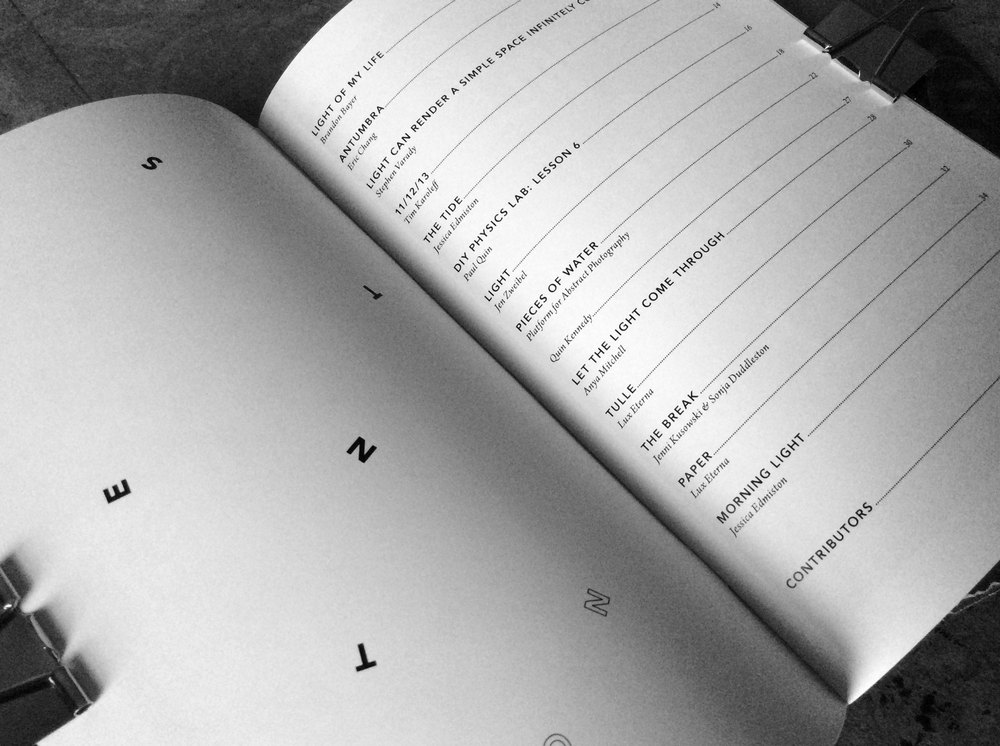 S
T
E
N
N
T
O
LIGHT OF MY LIFE
Brandon Bayer
ANTUMBRA
Eric Chang
LIGHT CAN RENDER A SIMPLE SPACE INFINITELY
Stephen Varady
11/12/13 14
Tim Karoleff
THE TIDE 16
Jessica Edmiston
DIY PHYSICS LAB: LESSON 6 18
Paul Quin
LIGHT 22
Jen Zweibel
PIECES OF WATER
Platform for Abstract Photography
Quin Kennedy 28
LET THE LIGHT COME THROUGH
Anya Mitchell
TULLE 30
Lux Eterna
THE BREAK 32
Jenni Kusowski & Sonja Duddleston
PAPER 34
Lux Eterna
MORNING LIGHT
Jessica Edmiston
CONTRIBUTORS